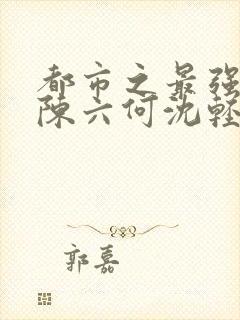 都市之最强
陈六何沈轻
郭嘉